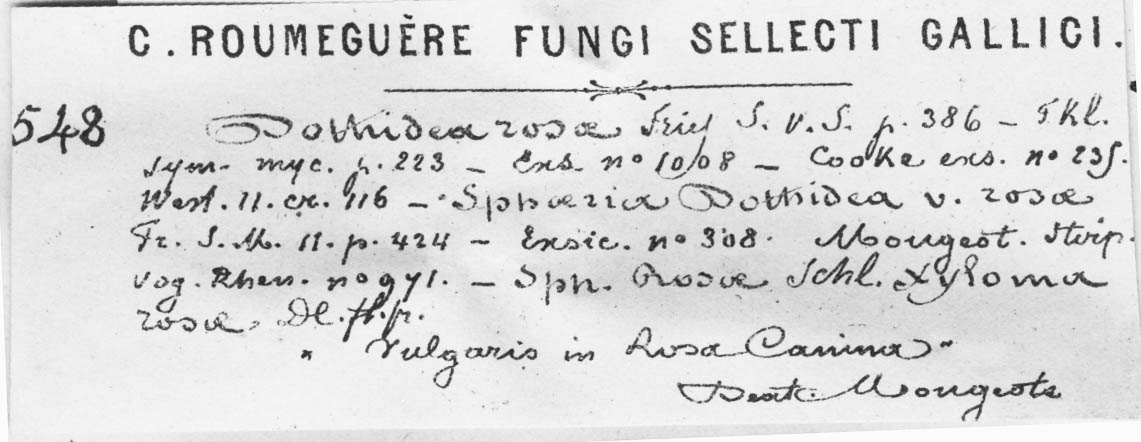 C. ROUMEGUÈRE FUNGI SELLECTI GALLICI.
548 Dothidea rosæ Fries S. V. S. p. 386 — Fkl.
sym. myc. p. 223 — Exs. no 1008 — Cooke exs. no 235.
West. 11. cr. 116 — Sphæria Dothidea v. rosæ
Fr. S. M. 11. p. 424 — Exsic. no 308. Mougeot. Stirp.
Vog. Rhen. no 971. — Sph. Rosæ Schl. Xyloma
rosæ Dl. fl. fr.
" Vulgaris in Rosa Canina "
Mougeote